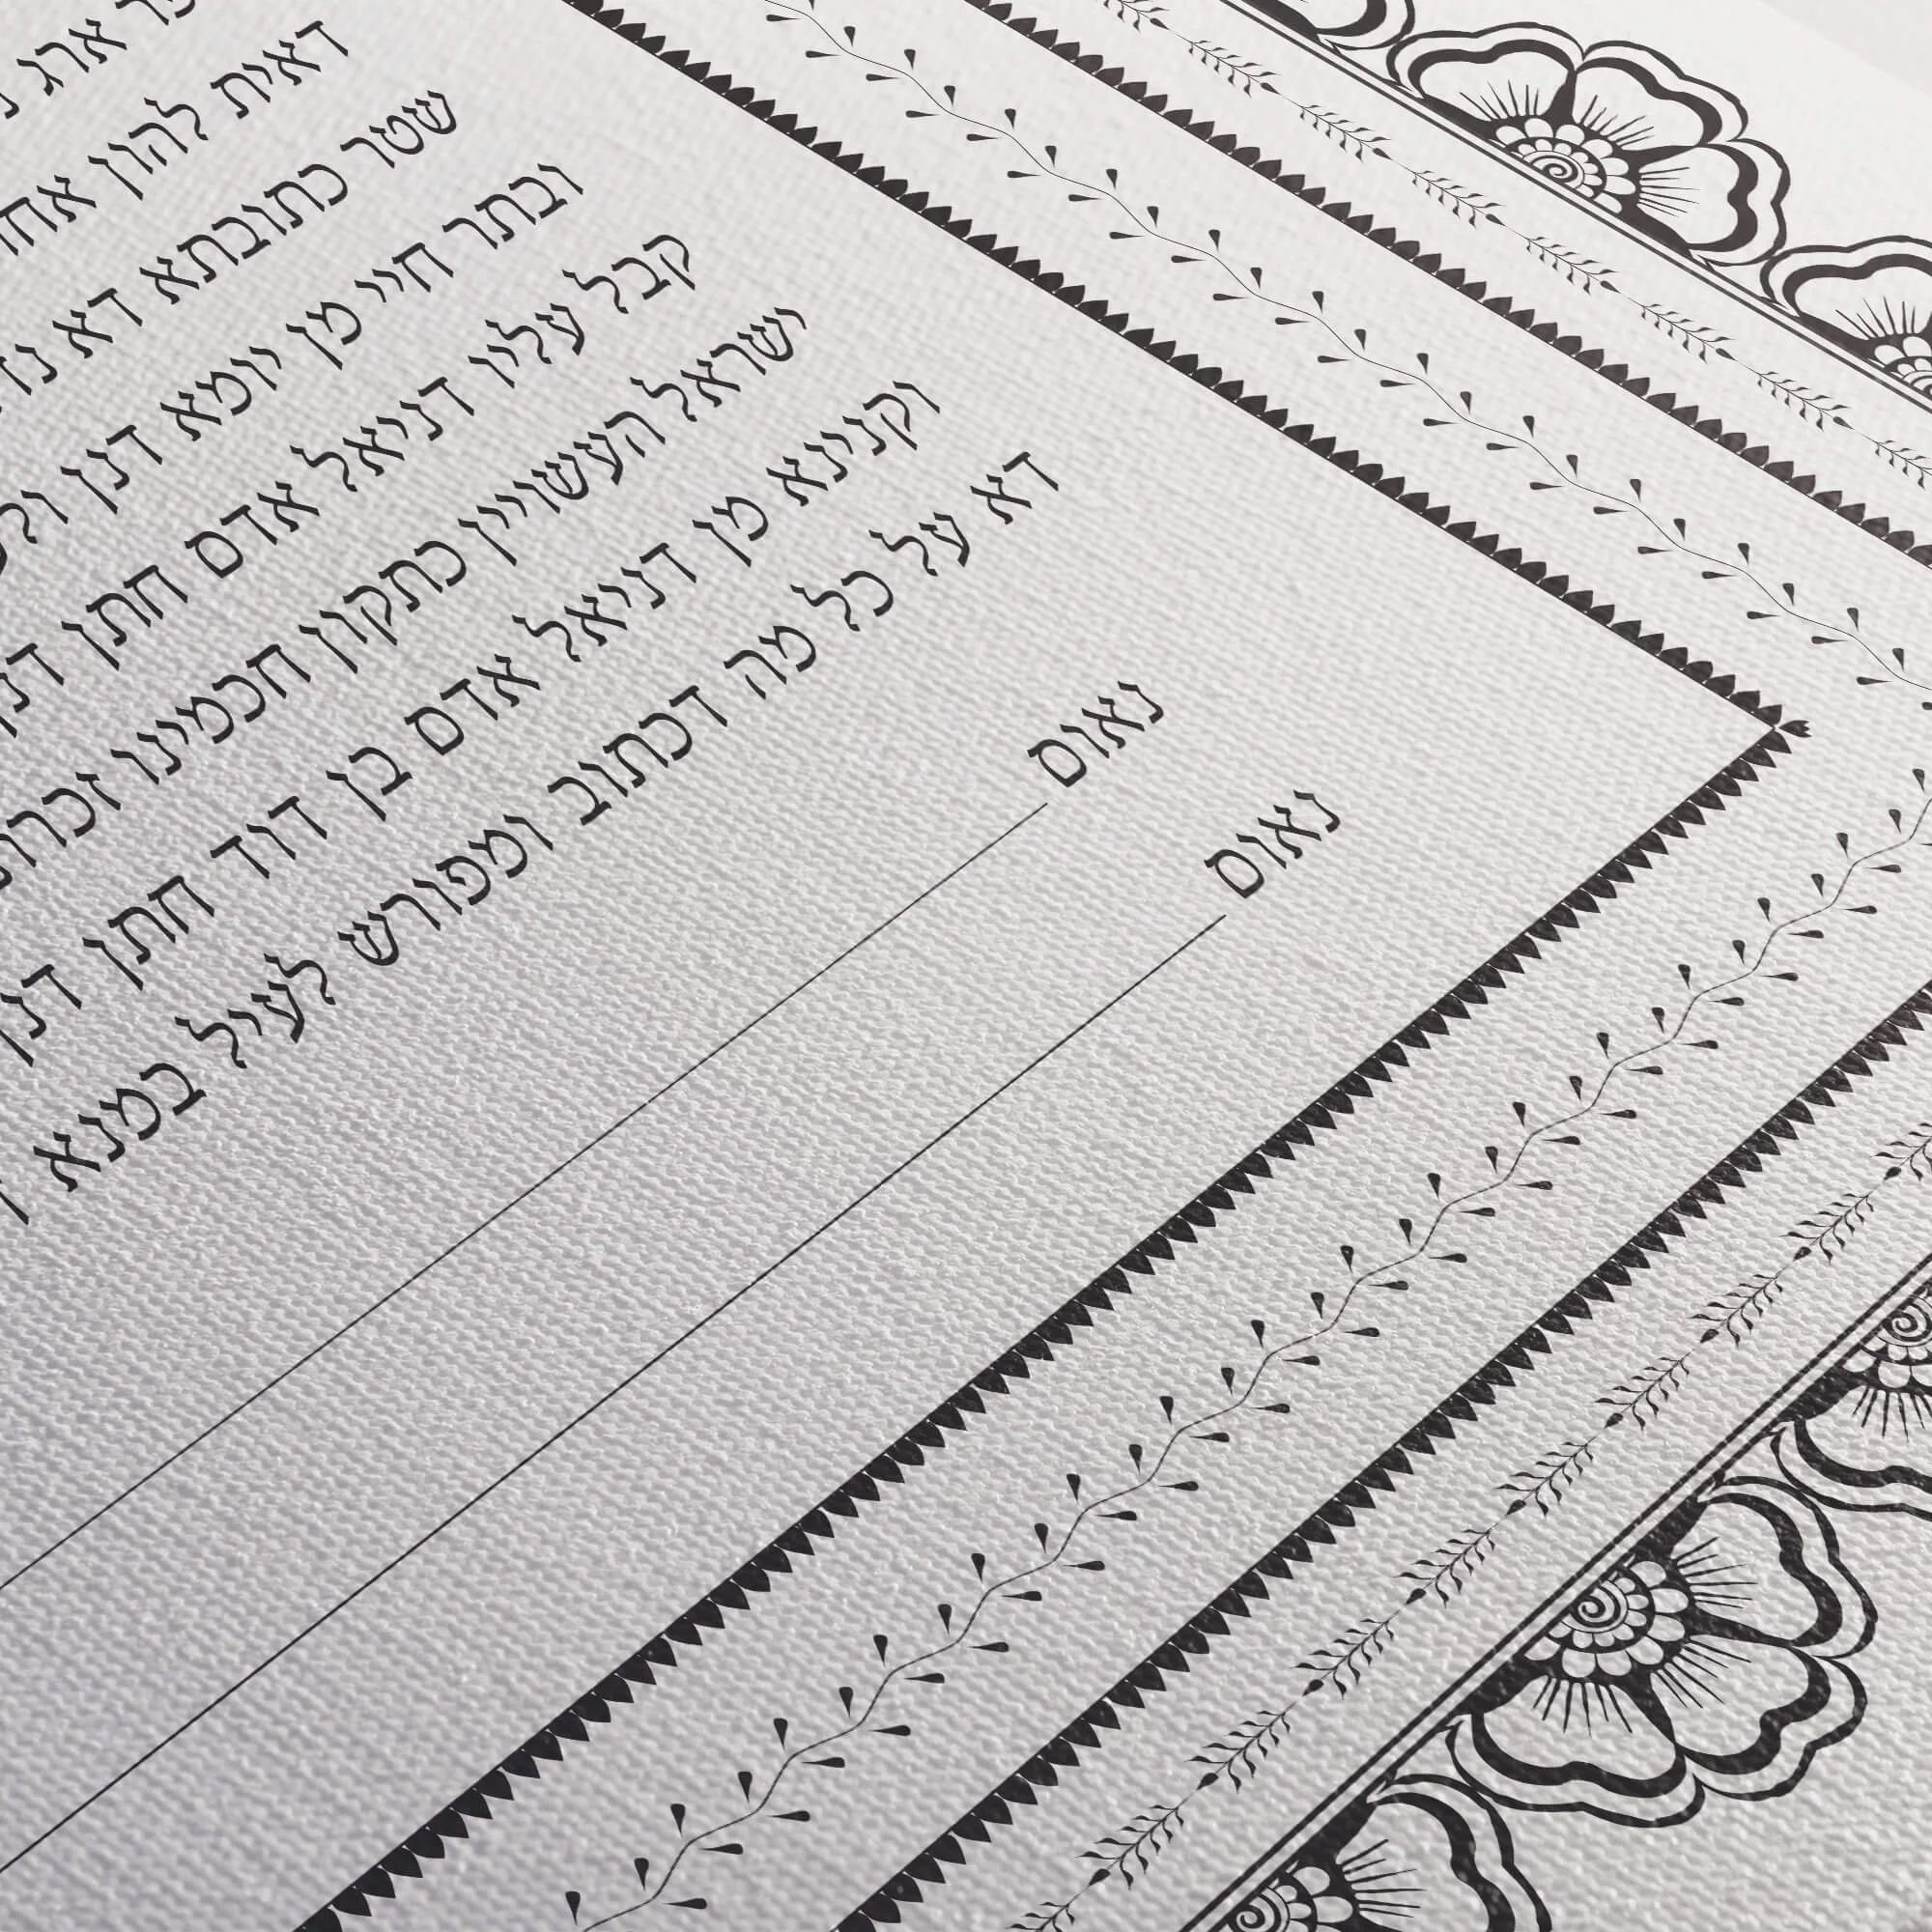 ארג
דאית להון
שטר כתובתא דא
ובתר חיי מן יומא דנן
קבל עליו דניאל אדם חתן
ישראל העשויין כתקון חכמינו
וקנינא מן דניאל אדם בן דוד חתן דנן
דא על כל מה דכתוב ומפורש לעיל במנא
נאום
נאום